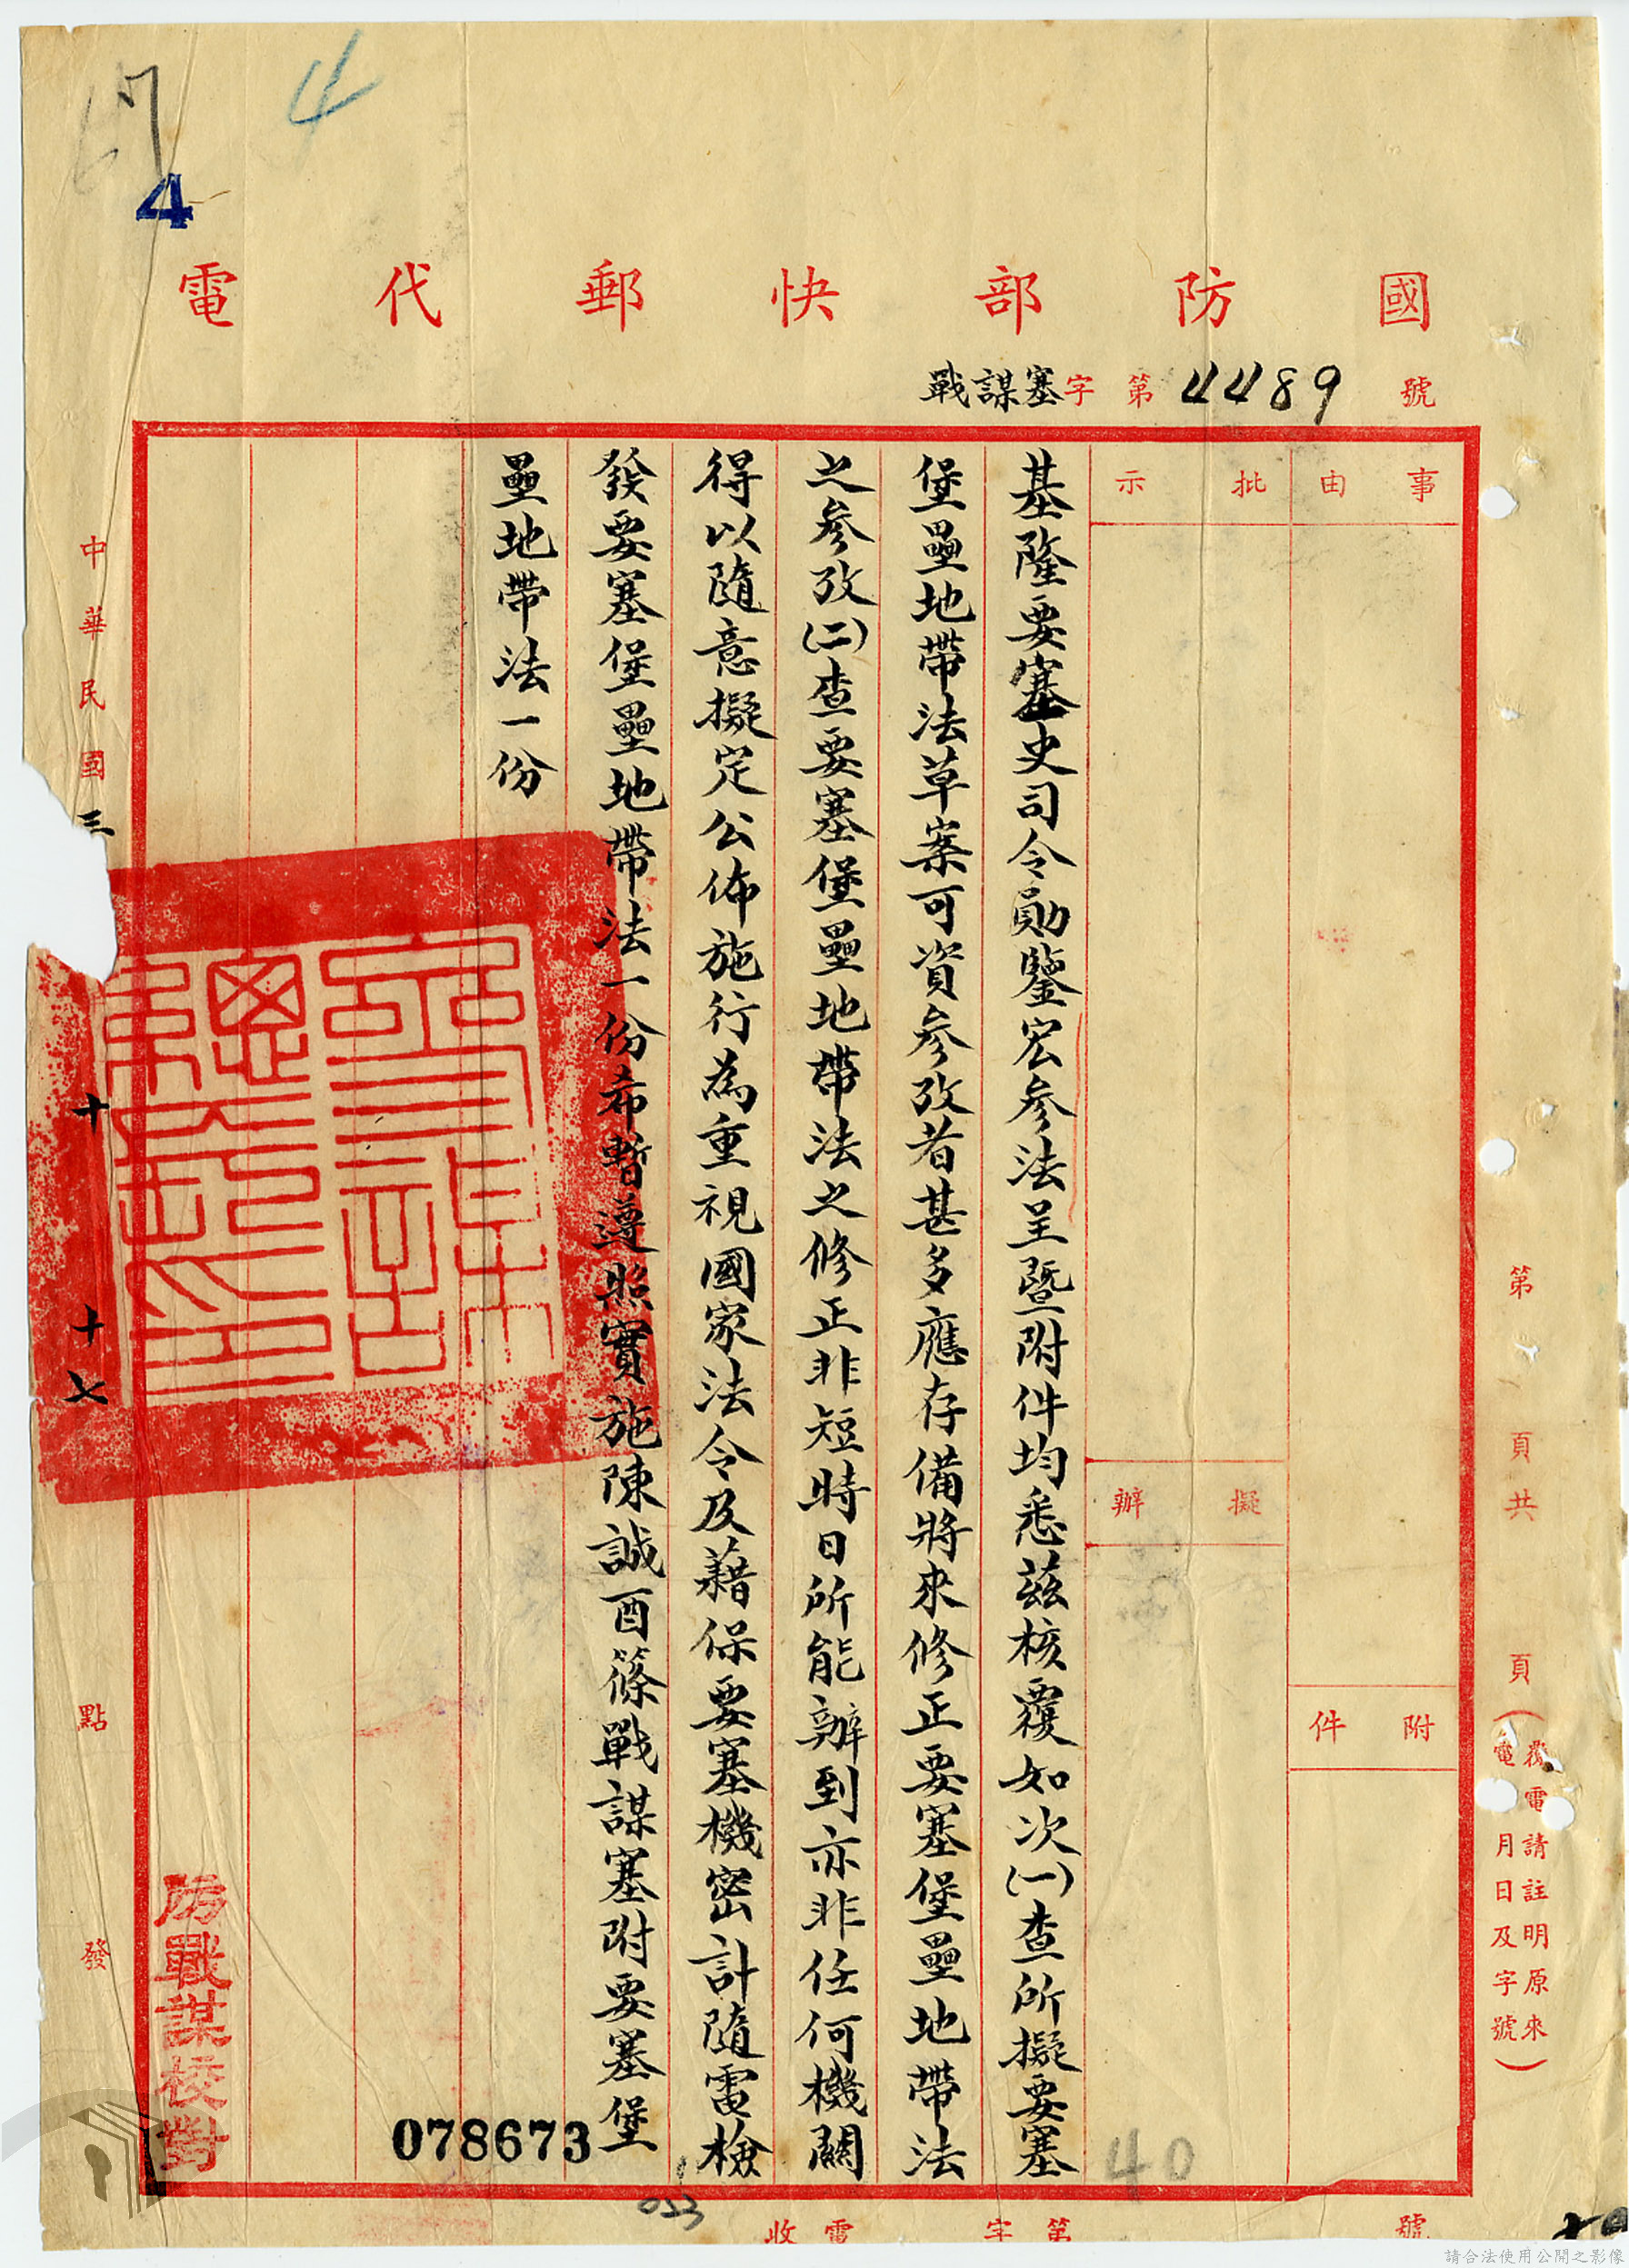 4
4
國防部快郵代電
戰謀塞字第4489號
事由
附件
批示
擬辦
基隆要塞史司令勛鑒宏參法呈暨附件均悉茲核覆如次(一)查所擬要塞
堡壘地帶法草案可資參攷者甚多應存備將來修正要塞堡壘地帶法
之參攷(二)查要塞堡壘地帶法之修正非短時日所能辦到亦非任何機關
得以隨意擬定公佈施行為重視國家法令及藉保要塞機密計隨電檢
發要塞堡壘地帶法一份希暫遵照實施陳誠酉篠戰謀塞附要塞堡
壘地帶法一份
中華民國三 十 十七 點 發
第 頁共 頁(覆電請註明原來
電月日及字號)
參謀總長
戰謀校對
078673
40
023
收電 字第 號
請合法使用公開之影像